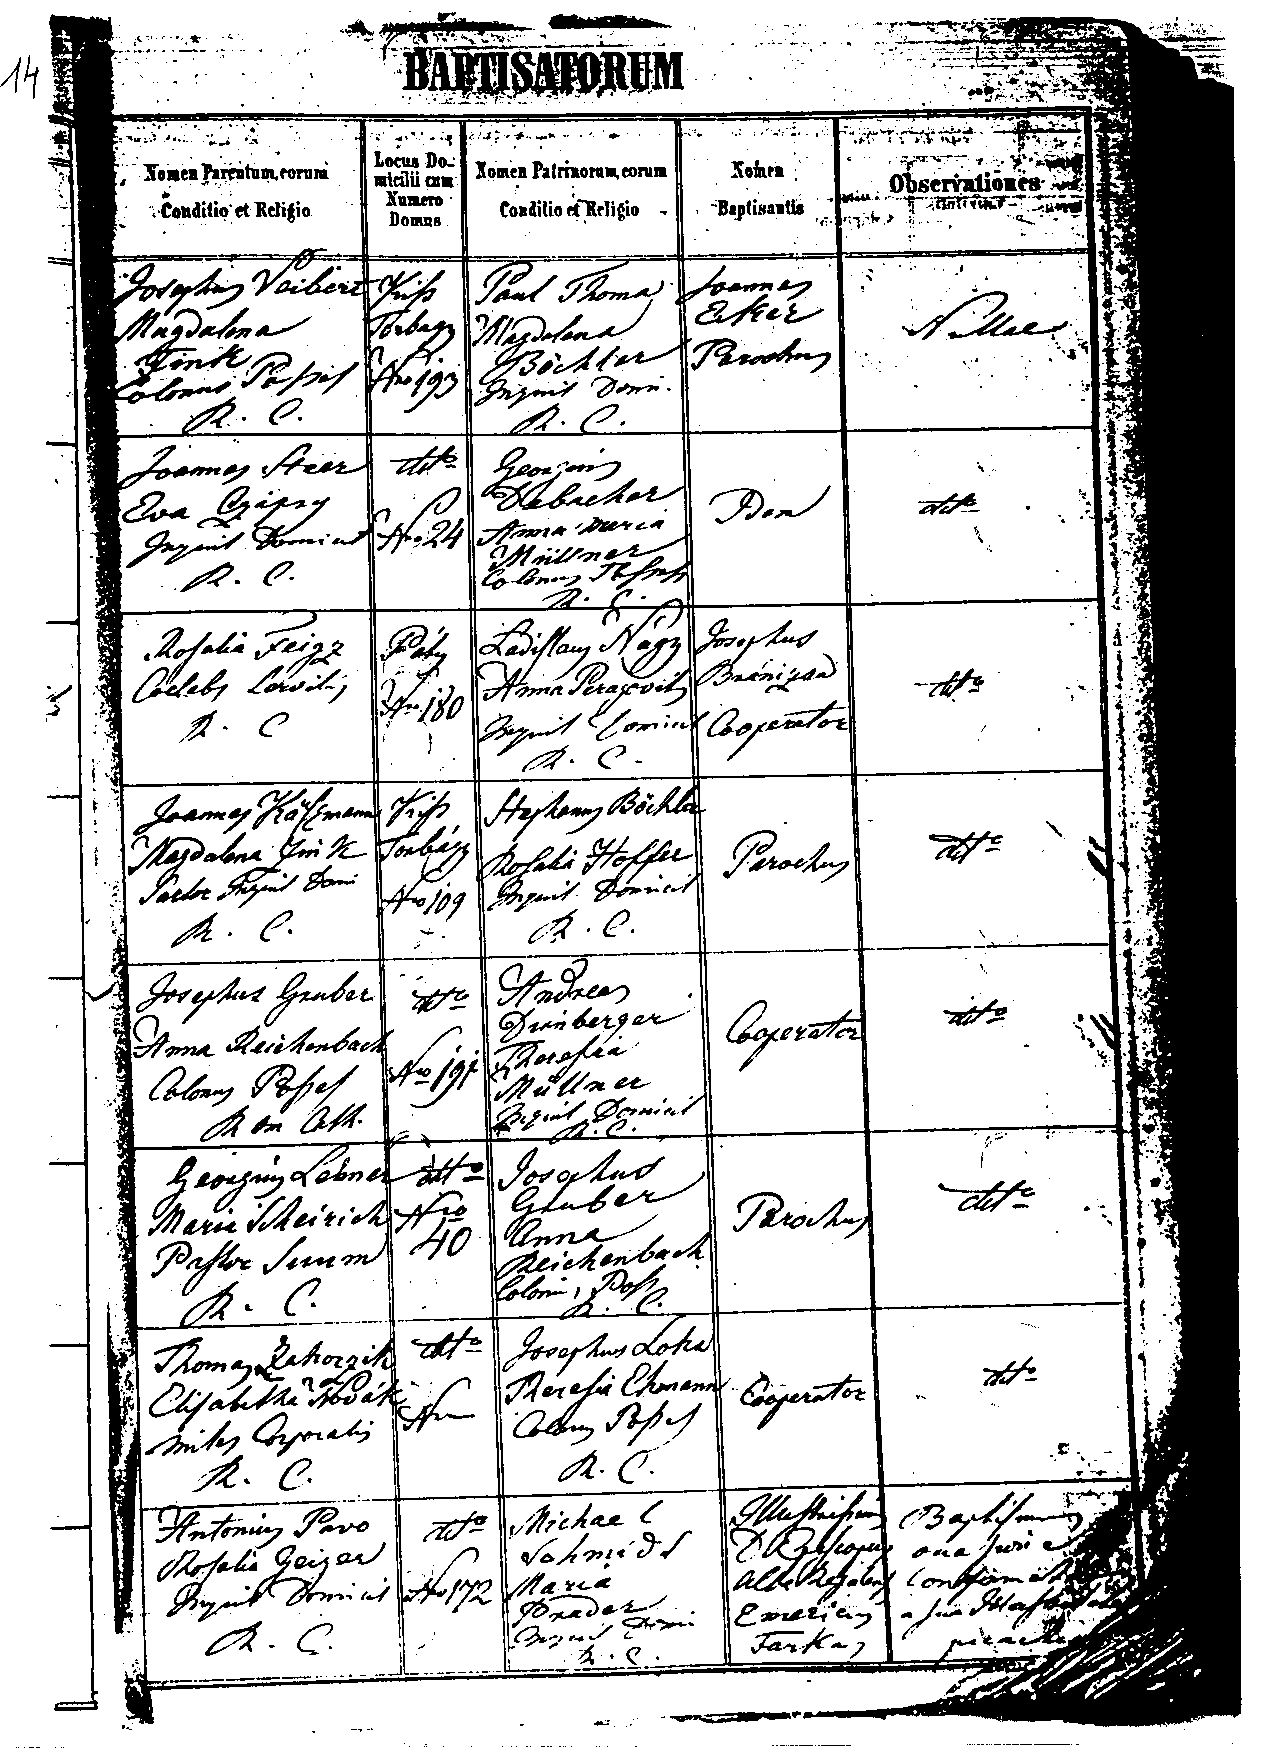 14
BAPTISATORUM
Nomen Parentum, eorum
Conditio et Religio
Locus Do-
micilii cum
Numero
Domus
Nomen Patrinorum, eorum
Conditio et Religio
Nomen
Baptisantis
Observationes
Josephus Veibert
Magdalena
Fink
Colonus Posses
R. C.
Kiss
Torbagy
Nro 193
Paul Thoma
Magdalena
Böchler
Inquil Domi.
R. C.
Joannes
Erker
Parochus
Nullae
Joannes Steer
Eva
Inquil Domicil
R. C.
ditto
Nro 24
Georgius
Anna Maria
Müllner
Colonus Posses
R. C.
Idem
ditto
Rosalia Feigz
Caelebs Servilis
R. C
Páty
Nro 180
Ladislaus Nagy
Anna
Inquil Domicil
R. C.
Josephus
Cooperator
ditto
Joannes
Magdalena Fink
Sartor Inquil Domi
R. C.
Kiss
Torbágy
Nro 109
Stephanus Böchler
Rosalia Hoffer
Inquil Domicil
R. C.
Parochus
ditto
Josephus Gruber
Anna Reichenbach
Colonus Posses
Rom Cath.
ditto
Nro 191
Andreas
Dimberger
Theresia
Müllner
Inquil Domicil
R. C.
Cooperator
ditto
Georgius Lebner
Maria Scheirich
Pastor Suum
R. C.
ditto
Nro
40
Josephus
Gruber
Anna
Reichenbach
Coloni, Poss
R. C.
Parochus
ditto
Thomas Zahorzik
Elisabetha Novák
miles Corporalis
R. C.
ditto
Nro
Josephus Loka
Theresia Ehmann
Colonus Posses
R. C.
Cooperator
ditto
Antonius Pavo
Rosalia Geiger
Inquil Domicil
R. C.
ditto
Nro 172
Michael
Schmidt
Maria
Prader
Inquil Domi
R. C.
Illustrissimus
D Episcopus
Alba Regalens
Emericus
Farkas